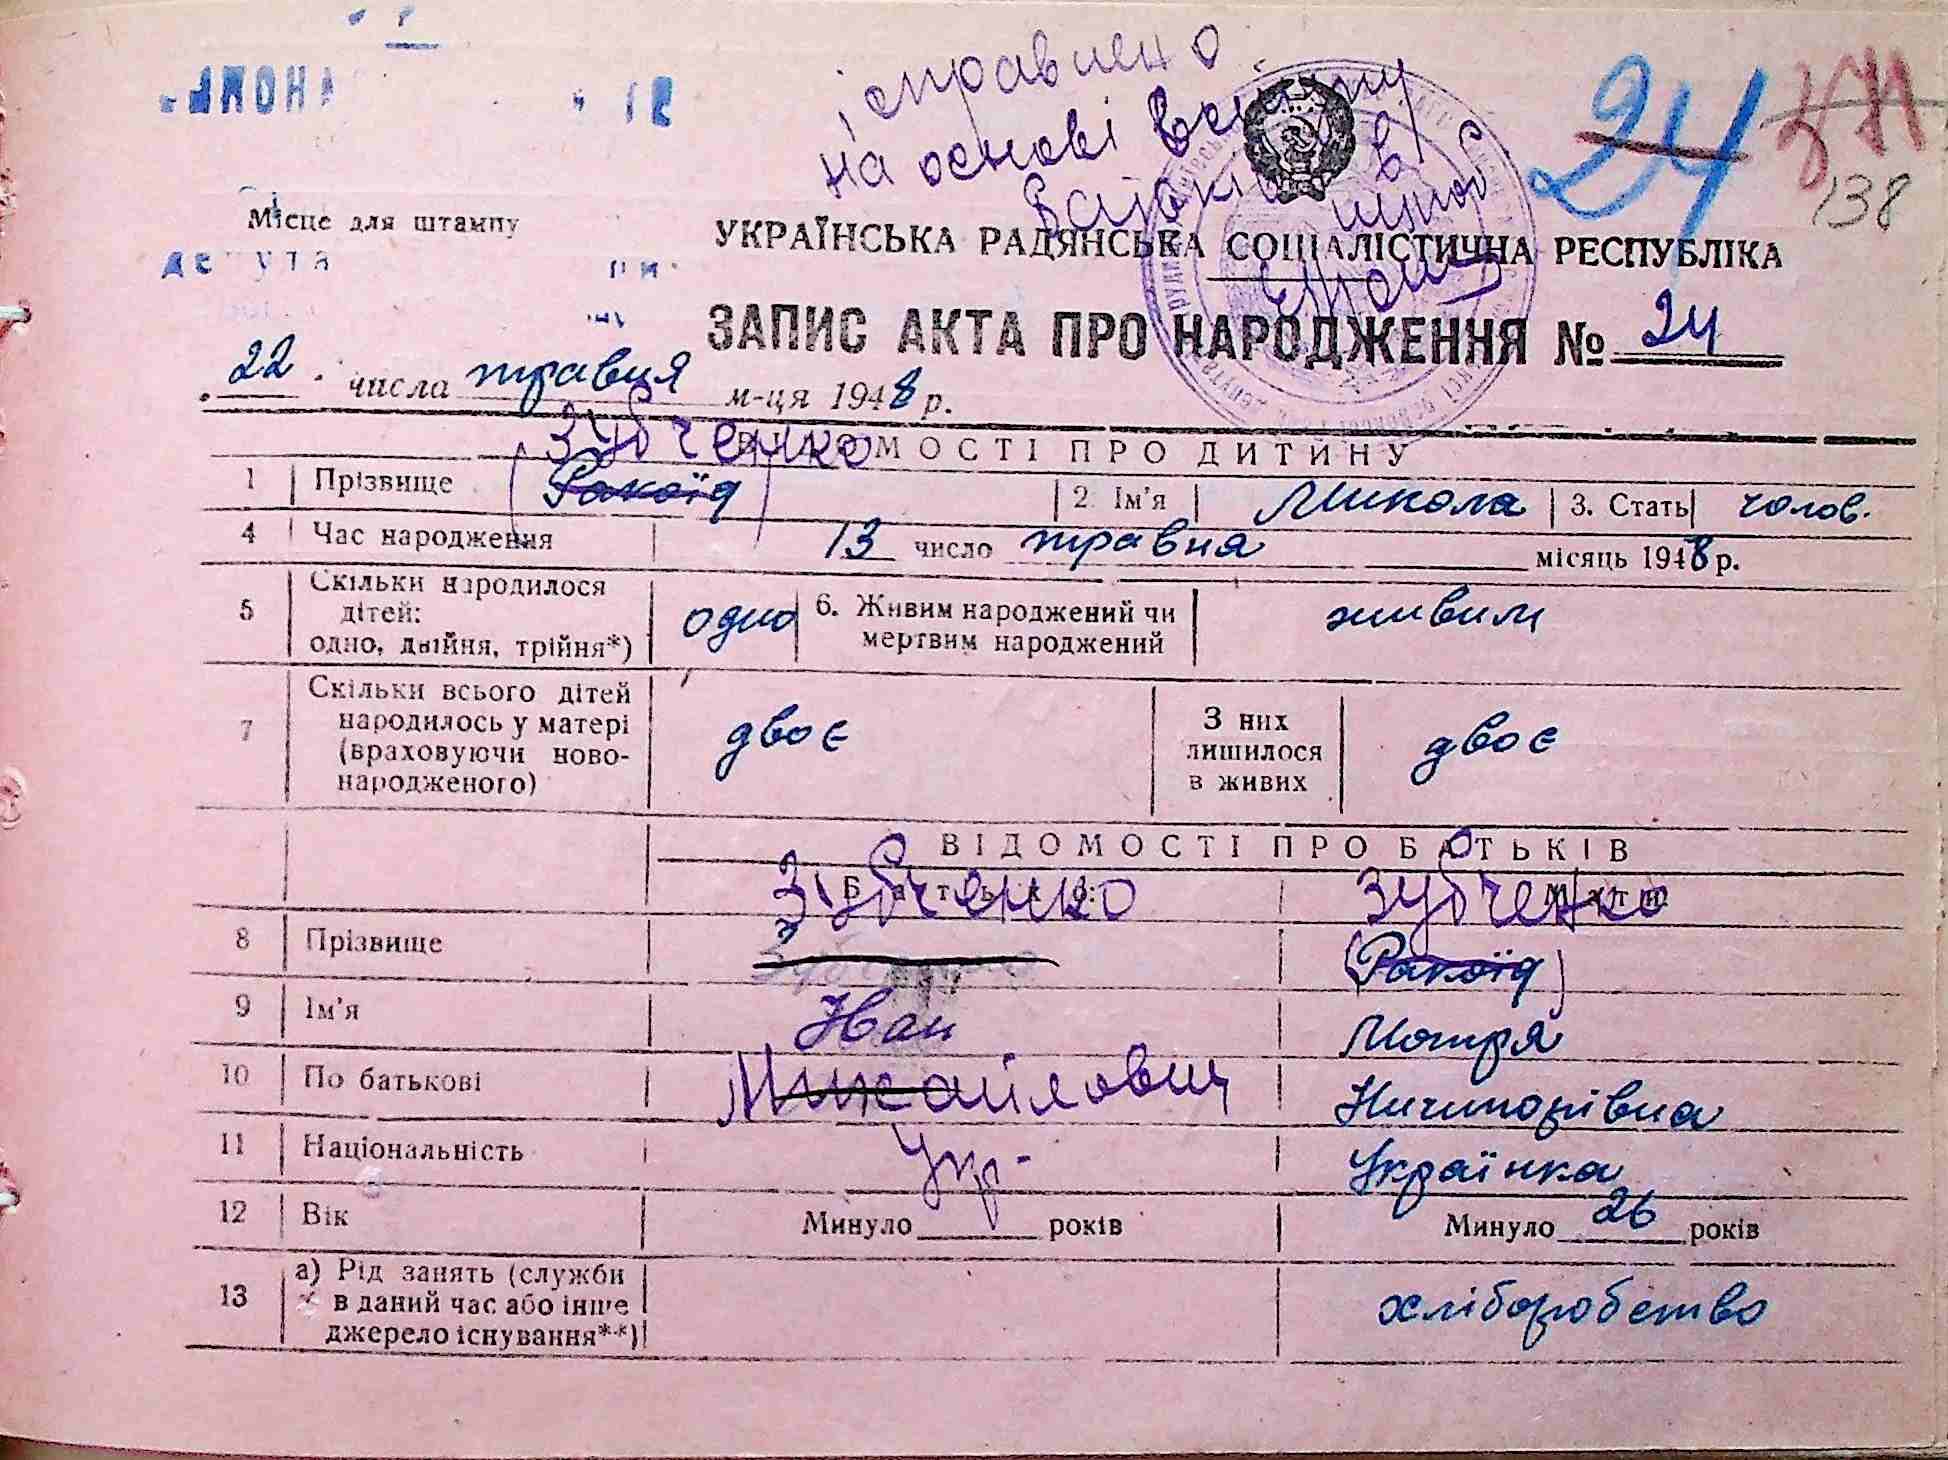 ісправлено
на основі
24
138
Місце для штампу
УКРАЇНСЬКА РАДЯНСЬКА СОЦІАЛІСТИЧНА РЕСПУБЛІКА
ЗАПИС АКТА ПРО НАРОДЖЕННЯ № 24
22 числа травня м-ця 1948 р.
Зубченко
ВІДОМОСТІ ПРО ДИТИНУ
1 Прізвище (Ракоїд) 2. Ім'я Микола 3. Стать чолов.
4 Час народження 13 число травня місяць 1948 р.
5 Скільки народилося дітей: одно, двійня, трійня*) одно 6. Живим народжений чи мертвим народжений живим
7 Скільки всього дітей народилось у матері (враховуючи новонародженого) двоє З них лишилося в живих двоє
ВІДОМОСТІ ПРО БАТЬКІВ
Батько: Мати:
Зубченко Зубченко
8 Прізвище (Ракоїд)
9 Ім'я Іван Мотря
10 По батькові Михайлович Ничипорівна
11 Національність Укр. Українка
12 Вік Минуло років Минуло 26 років
13 а) Рід занять (служби в даний час або інше джерело існування**) хліборобство